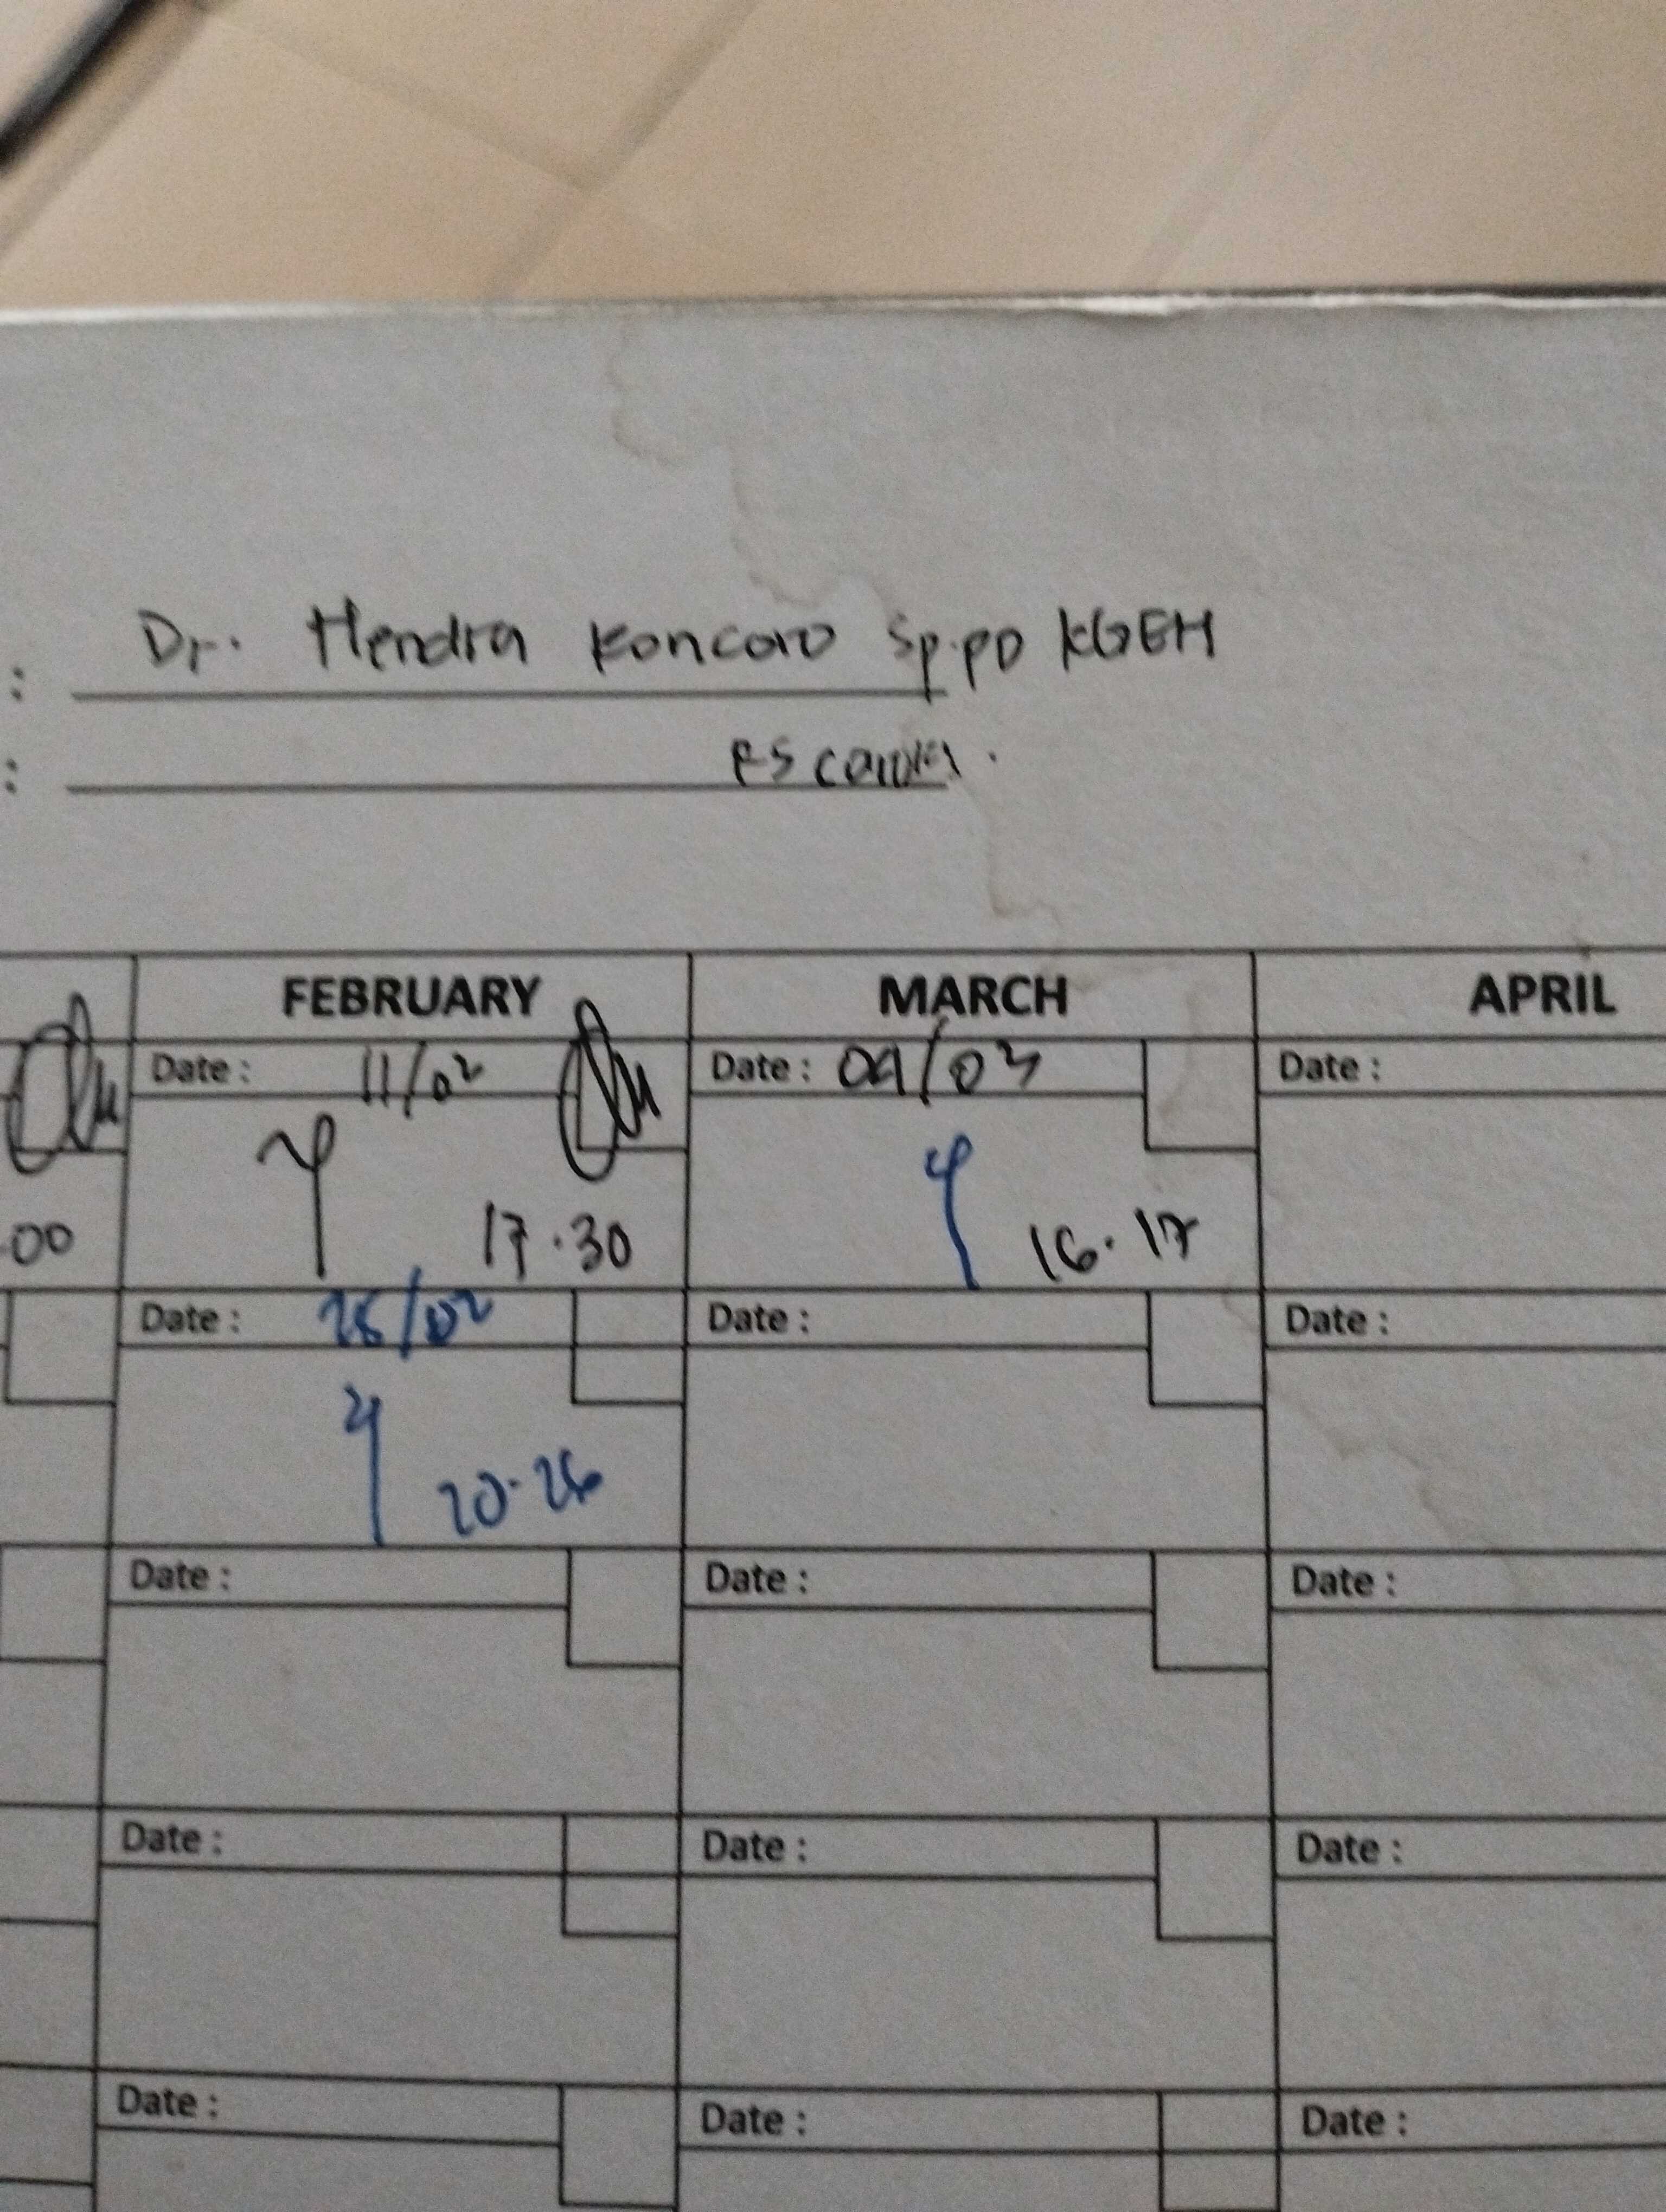 : Dr. Hendra Koncoro Sp.PD KGEH
: RS
FEBRUARY MARCH APRIL
Date : 11/02 Date : 09/03 Date :
.00 17.30 16.17
Date : /02 Date : Date :
20.26
Date : Date : Date :
Date : Date : Date :
Date : Date : Date :